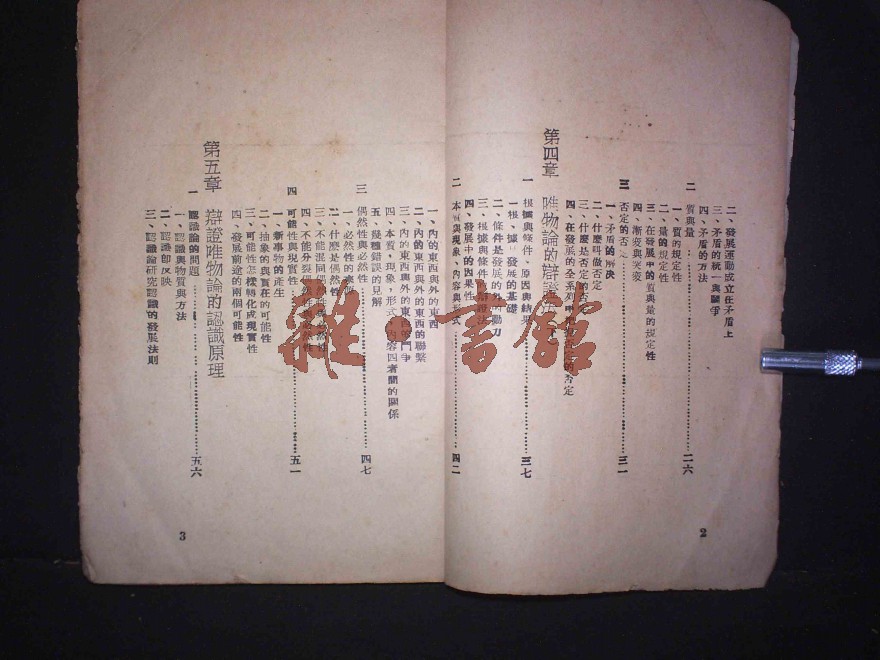 二、發展運動成立在矛盾上
三、矛盾的統一與鬭爭
四、矛盾的方法
二 質與量……二六
一、質的規定性
二、量的規定性
三、在發展中的質與量的規定性
四、漸變與突變
三 否定的否定……三一
一、矛盾的解決
二、什麼叫做否定
三、什麼是否定的否定
四、在發展的全系列中 否定
第四章 唯物論的辯證法
一 根據與條件、原因與結果……三七
一、根據 發展的基礎
二、條件是發展的外 動力
三、根據與條件 辯證法
四、發展中的因果性
二 本質與現象、內容與形式……四二
2
一、內的東西與外的東西
二、內的東西與外的東西的聯繫
三、內的東西與外的東西 鬥爭
四、本質，現象，形式 內容四者間的關係
五、幾種錯誤的見解
三 偶然性與必然性……四七
一、必然性的
二、什麼是偶然性
三、不能混同偶然 必然性
四、不能分裂偶然 必然性
四 可能性與現實性……五一
一、新事物的產生
二、抽象的與實在的可能性
三、可能性怎樣轉化成現實性
四、發展前途的兩個可能性
第五章 辯證唯物論的認識原理
一 認識論的問題……五六
一、認識與物質與方法
二、認識即反映
三、認識論研究認識的發展法則
3
雜·書館